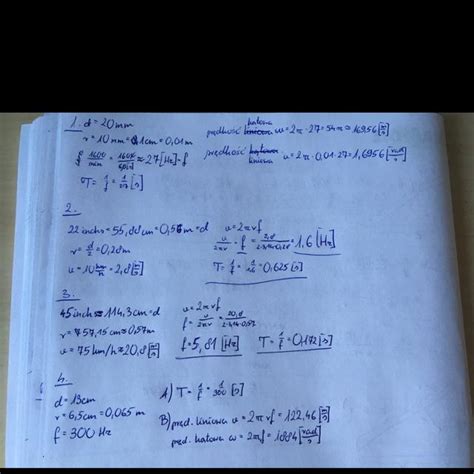 1. d = 20mm
r = 10mm = 0,1cm = 0,01m
f 1600/min = 160x/60[s] ≈ 27[Hz] = f
T = 1/f = 1/27 [s]
prędkość liniowa kątowa ω = 2π · 27 = 54π ≈ 169,56 [m/s]
prędkość kątowa liniowa v = 2π · 0,01 · 27 = 1,6956 [rad/s]
2.
22 inchs = 55,88cm = 0,56m = d
r = d/2 = 0,28m
v = 10 km/h = 2,8 [m/s]
v = 2πrf
v/2πr = f = 2,8/2·3,14·0,28 = 1,6 [Hz]
T = 1/f = 1/1,6 = 0,625 [s]
3.
45 inch ≈ 114,3cm = d
r = 57,15cm ≈ 0,57m
v = 75 km/h ≈ 20,8 [m/s]
v = 2πrf
f = v/2πr = 20,8/2·3,14·0,57
f = 5,81 [Hz]
T = 1/f = 0,172 [s]
4.
d = 13cm
r = 6,5cm = 0,065m
f = 300 Hz
A) T = 1/f = 1/300 [s]
B) pręd. liniowa v = 2πrf = 122,46 [m/s]
pręd. kątowa ω = 2πf = 1884 [rad/s]